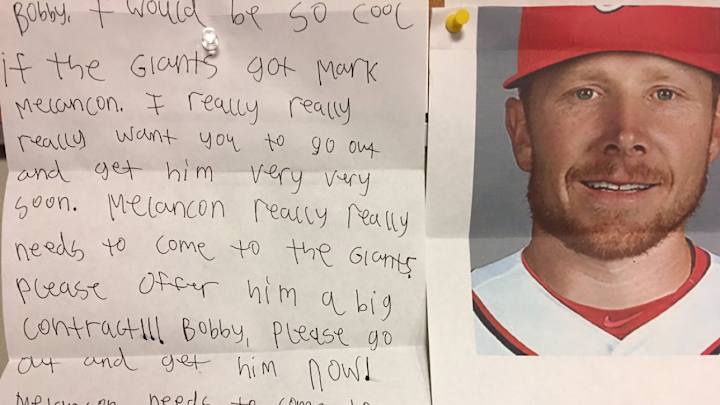 Bobby, I would be so cool
if the Giants got Mark
Melancon. I really really
really want you to go out
and get him very very
soon. Melancon really really
needs to come to the Giants.
Please offer him a big
contract!!! Bobby, please go
out and get him now!
Melancon needs to come to